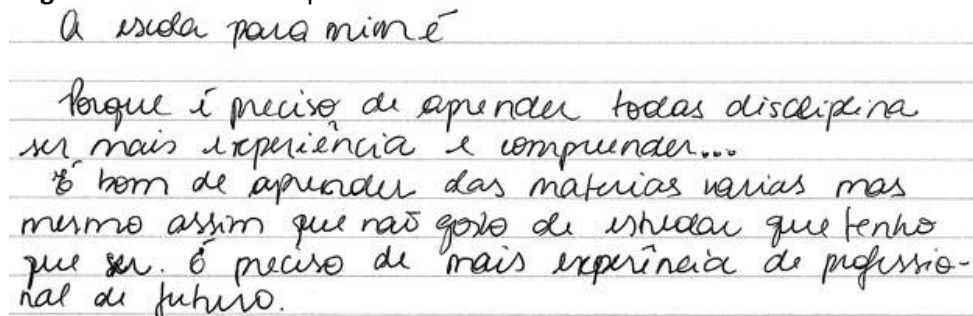 A escola para mim é
Porque é preciso de aprender todas discliplina
ser mais experiência e compreender...
É bom de aprender das materias varias mas
mesmo assim que naõ gosto de estudar que tenho
que ser. É preciso de mais experîncia de professio-
nal de futuro.